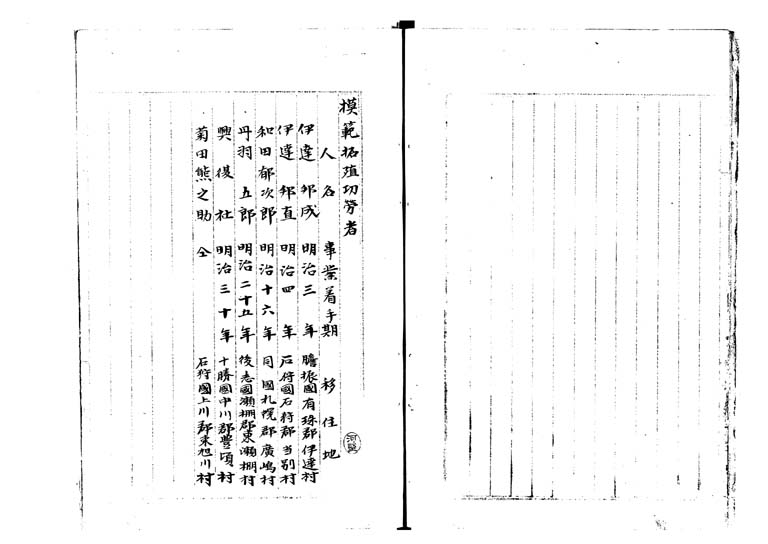 模範拓殖功勞者
人名 事業着手期 移住地
伊達邦成 明治三年 膽振國有珠郡伊達村
伊達邦直 明治四年 石狩國石狩郡当別村
和田郁次郎 明治十六年 同國札幌郡廣嶋村
丹羽五郎 明治二十五年 後志國瀬棚郡東瀬棚村
興復社 明治三十年 十勝國中川郡豊頃村
菊田熊之助 仝 石狩國上川郡東旭川村